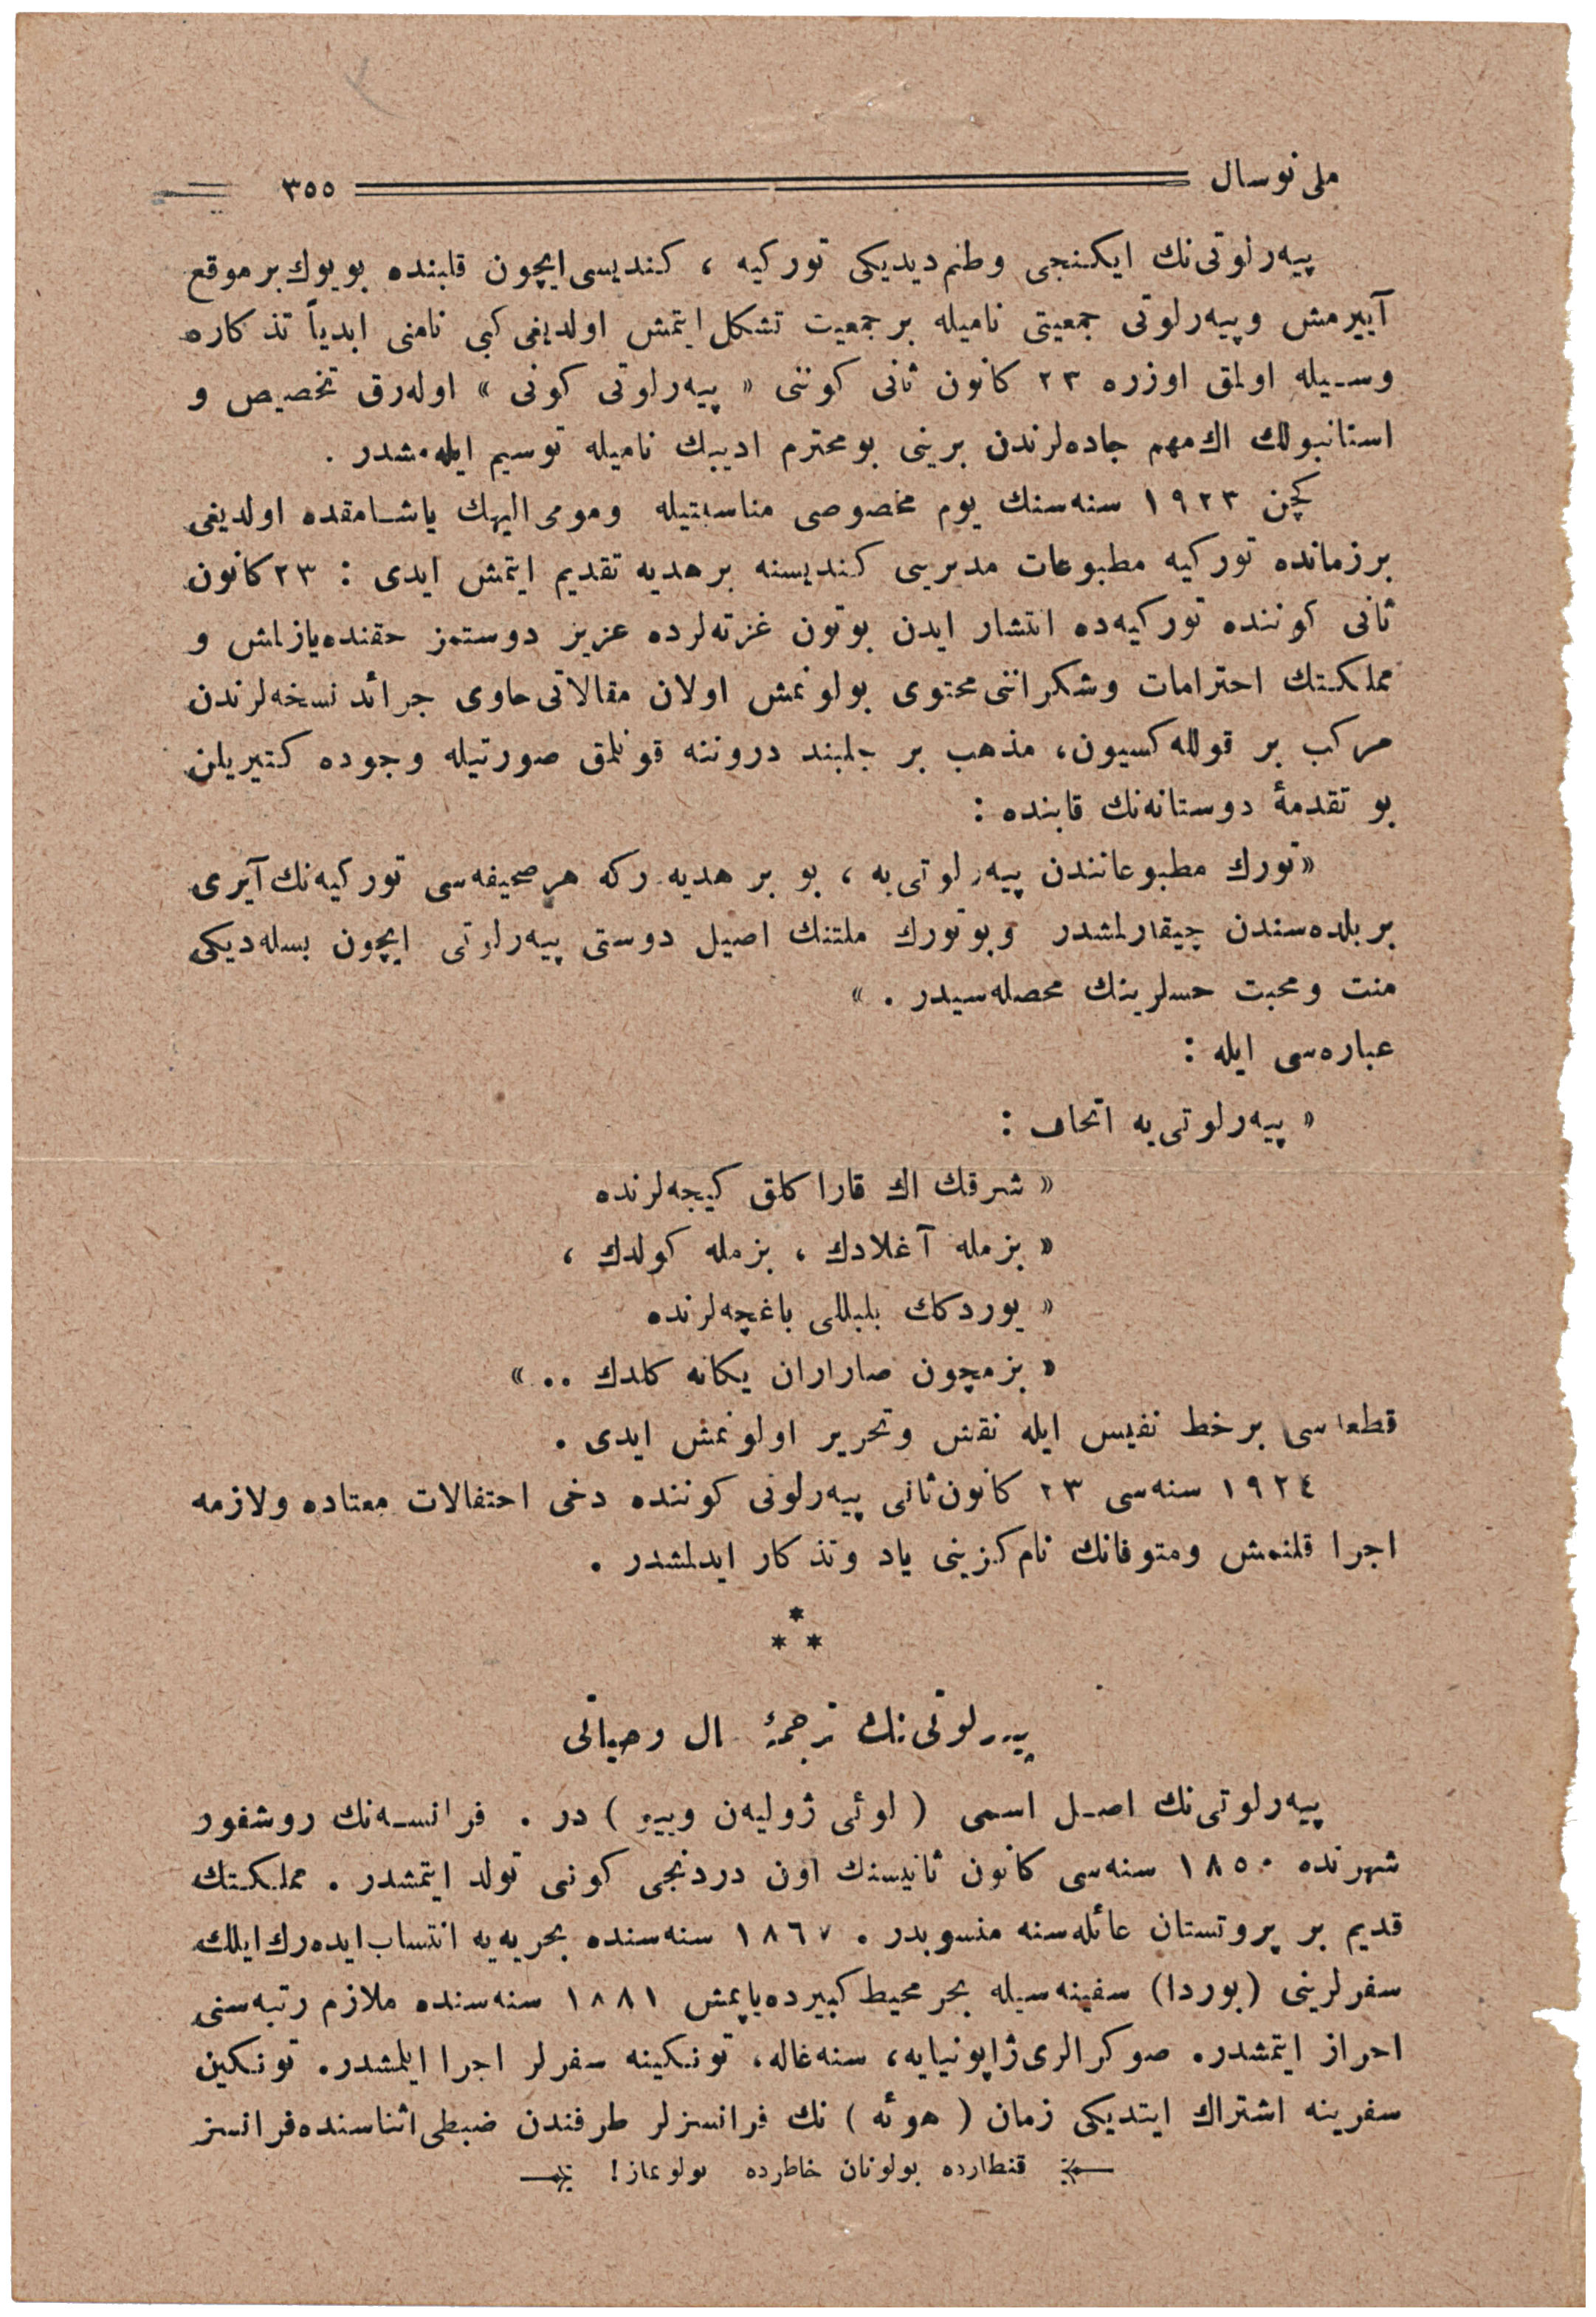 ملی نوسال
٣٥٥
پیه‌رلوتی‌نك ایكنجی وطنم دیدیكی توركیه ، كندیسی ایچون قلبنده بویوك بر موقع
آییرمش و پیه‌رلوتی جمعیتی نامیله بر جمعیت تشكل ایتمش اولدیغی كبی نامنی ابدیاً تذكاره
وسیله اولمق اوزره ٢٣ كانون ثانی كوننی « پیه‌رلوتی كونی » اوله‌رق تخصیص و
استانبولك اك مهم جاده‌لرندن برینی بو محترم ادیبك نامیله توسیم ایله‌مشدر .
كچن ١٩٢٣ سنه‌سنك یوم مخصوصی مناسبتیله ومومی الیهك یاشامقده اولدیغی
برزمانده توركیه مطبوعات مدیریی كندیسنه بر هدیه تقدیم ایتمش ایدی : ٢٣ كانون
ثانی كوننده توركیه‌ده انتشار ایدن بوتون غزته‌لرده عزیز دوستمز حقنده یازلمش و
مملكتك احترامات وشكراننی محتوی بولونمش اولان مقالاتی حاوی جرائد نسخه‌لرندن
مركب بر قولله‌كسیون، مذهب بر جلبند دروننه قونلمق صورتیله وجوده كتیریلن
بو تقدمهٔ دوستانه‌نك قابنده :
«تورك مطبوعاتندن پیه‌رلوتی‌یه ، بو بر هدیه‌در كه هر صحیفه‌سی توركیه‌نك آیری
بر بلده‌سندن چیقارلمشدر وبو تورك ملتنك اصیل دوستی پیه‌رلوتی ایچون بسله‌دیكی
منت ومحبت حسلرینك محصله‌سیدر . »
عباره‌سی ایله :
« پیه‌رلوتی‌یه اتحاف :
« شرقك اك قاراكلق كیجه‌لرنده
« بزمله آغلادك ، بزمله كولدك ،
« یوردكك بلبللی باغچه‌لرنده
« بزمچون صاراران یكانه كلدك .. »
قطعه‌سی بر خط نفیس ایله نقش وتحریر اولونمش ایدی .
١٩٢٤ سنه‌سی ٢٣ كانون ثانی پیه‌رلوتی كوننده دخی احتفالات معتاده ولازمه
اجرا قلنمش ومتوفانك نام كزینی یاد وتذكار ایدلمشدر .
* * *
پیه‌رلوتی‌نك ترجمهٔ حال و حیاتی
پیه‌رلوتی‌نك اصل اسمی ( لوئی ژولیه‌ن وییو ) در . فرانسه‌نك روشفور
شهرنده ١٨٥٠ سنه‌سی كانون ثانیسنك اون دردنجی كونی تولد ایتمشدر . مملكتك
قدیم بر پروتستان عائله‌سنه منسوبدر . ١٨٦٧ سنه‌سنده بحریه‌یه انتساب ایده‌رك ایلك
سفرلرینی (بوردا) سفینه‌سیله بحر محیط كبیرده یاپمش ١٨٨١ سنه‌سنده ملازم رتبه‌سنی
احراز ایتمشدر. صوكرالری ژاپونیایه، سنه‌غاله، تونكینه سفرلر اجرا ایلمشدر. تونكین
سفرینه اشتراك ایتدیكی زمان ( هوئه ) نك فرانسزلر طرفندن ضبطی اثناسنده فرانسز
قنطارده بولونان خاطرده بولونماز !